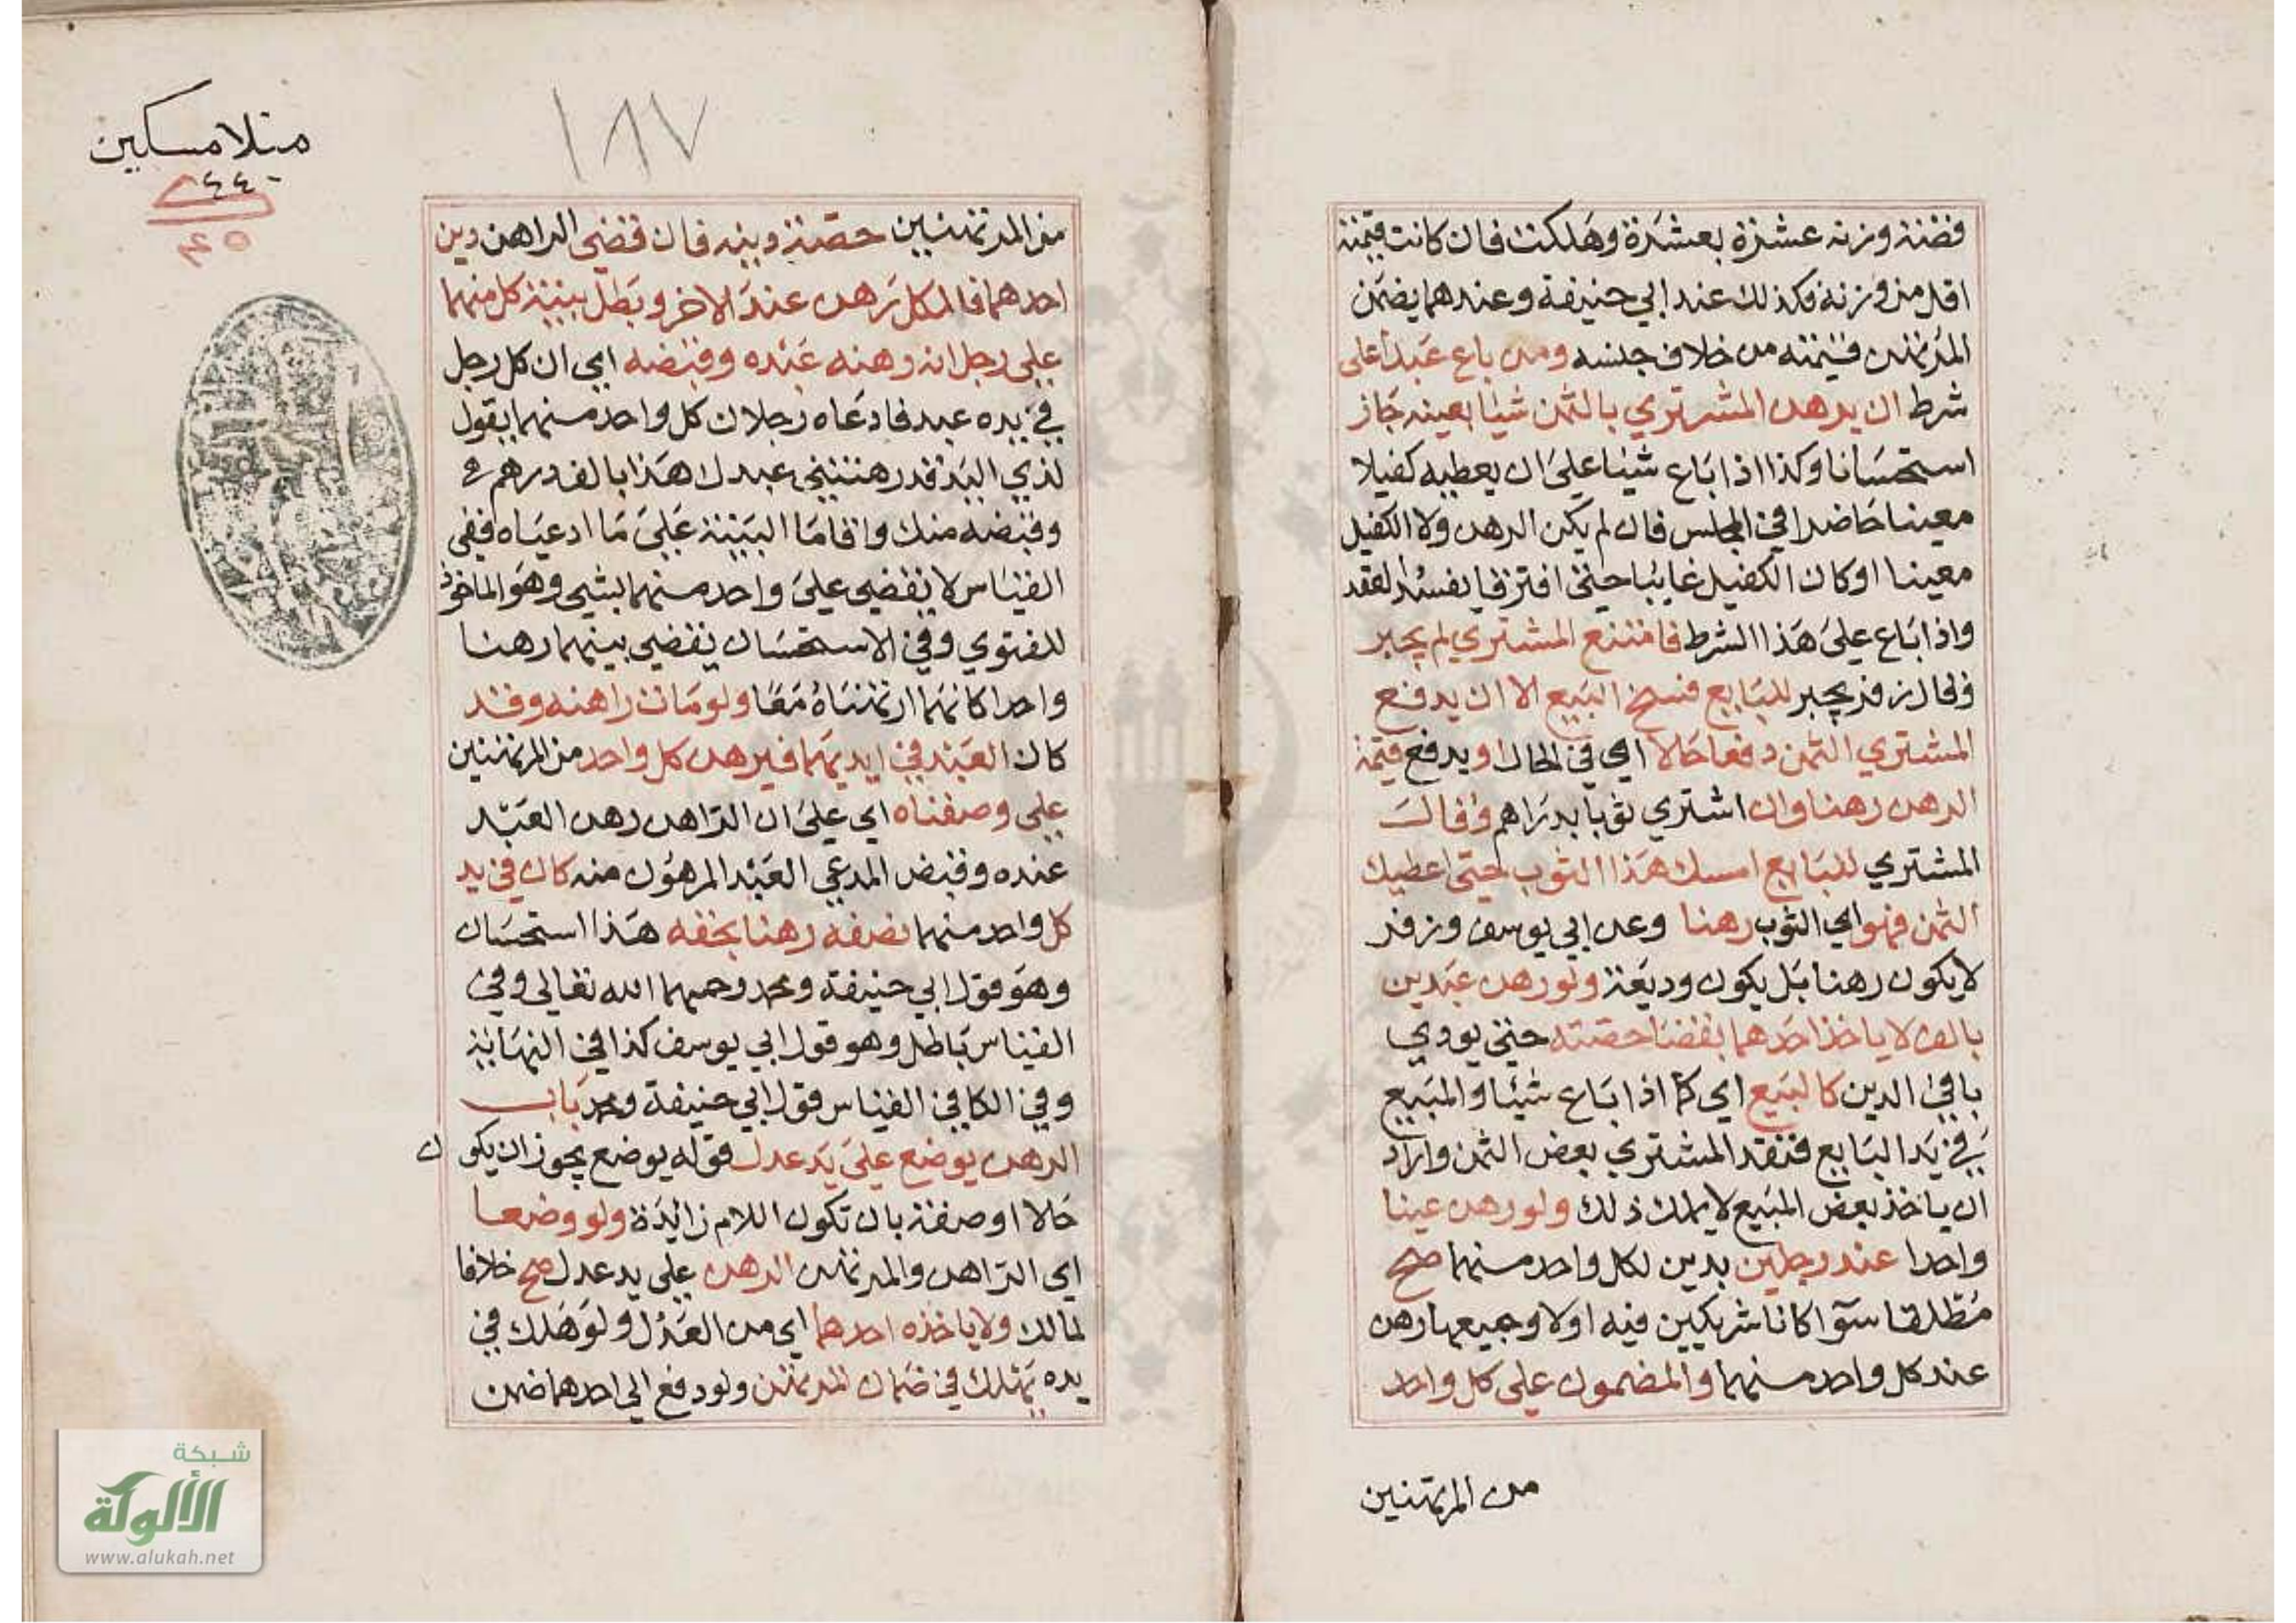 فضة وزنه عشرة بعشرة وهلكت فان كانت قيمته
اقل من وزنه فكذلك عند ابي حنيفة وعندهما يضمن
المرتهن قيمته من خلاف جنسه ومن باع عبدا على
شرط ان يرهن المشتري بالثمن شيئا بعينه جاز
استحسانا وكذا اذا باع شيئا على ان يعطيه كفيلا
معينا حاضرا في المجلس فان لم يكن الرهن ولا الكفيل
معينا او كان الكفيل غايبا حتى افترقا يفسد العقد
واذا باع على هذا الشرط فامتنع المشتري لم يجبر
وقال زفر يجبر للبايع فسخ البيع الا ان يدفع
المشتري الثمن دفعا حالا اي في الحال او يدفع قيمة
الرهن رهنا وان اشترى ثوبا بدراهم وقال
المشتري للبايع امسك هذا الثوب حتى اعطيك
الثمن فهو اي الثوب رهنا وعن ابي يوسف وزفر
لا يكون رهنا بل يكون وديعة ولو رهن عبدين
بالف لا ياخذ احدهما بقضا حصته حتى يودي
باقي الدين كالبيع اي كما اذا باع شيئا والمبيع
في يد البايع فنقد المشتري بعض الثمن واراد
ان ياخذ بعض المبيع لا يملك ذلك ولو رهن عينا
واحدا عند رجلين بدين لكل واحد منهما صح
مطلقا سوآ كانا شريكين فيه اولا وجميعها رهن
عند كل واحد منهما والمضمون على كل واحد
من المرتهنين
منلا مسكين
١٨٧
من المرتهنين حصة دينه فان قضى الراهن دين
احدهما فالكل رهن عند الاخر وبطل بينة كل منهما
على رجل انه رهنه عبده وقبضه اي ان كل رجل
في يده عبد فادعاه رجلان كل واحد منهما يقول
لذي اليد قد رهنتني عبدك هذا بالف درهم
وقبضه منك واقاما البينة على ما ادعياه ففي
القياس لا يقضي على واحد منهما بشي وهو الماخوذ
للفتوي وفي الاستحسان يقضي بينهما رهنا
واحدا كانهما ارتهناه معا ولو مات راهنه وقد
كان العبد في ايديهما فبرهن كل واحد من المرتهنين
على وصفناه اي على ان الراهن رهن العبد
عنده وقبض المدعي العبد المرهون منه كان في يد
كل واحد منهما نصفه رهنا بحقه هذا استحسان
وهو قول ابي حنيفة ومحمد رحمهما الله تعالى وفي
القياس باطل وهو قول ابي يوسف كذا في النهاية
وفي الكافي القياس قول ابي حنيفة ومحمد باب
الرهن يوضع على يد عدل قوله يوضع يجوز ان يكون
حالا او صفة بان تكون اللام زائدة ولو وضعا
اي الراهن والمرتهن الرهن على يد عدل صح خلافا
لمالك ولا ياخذه احدهما اي من العدل ولو هلك في
يده يهلك في ضمان المرتهن ولو دفع الى احدهما ضمن
شبكة
الألوكة
www.alukah.net